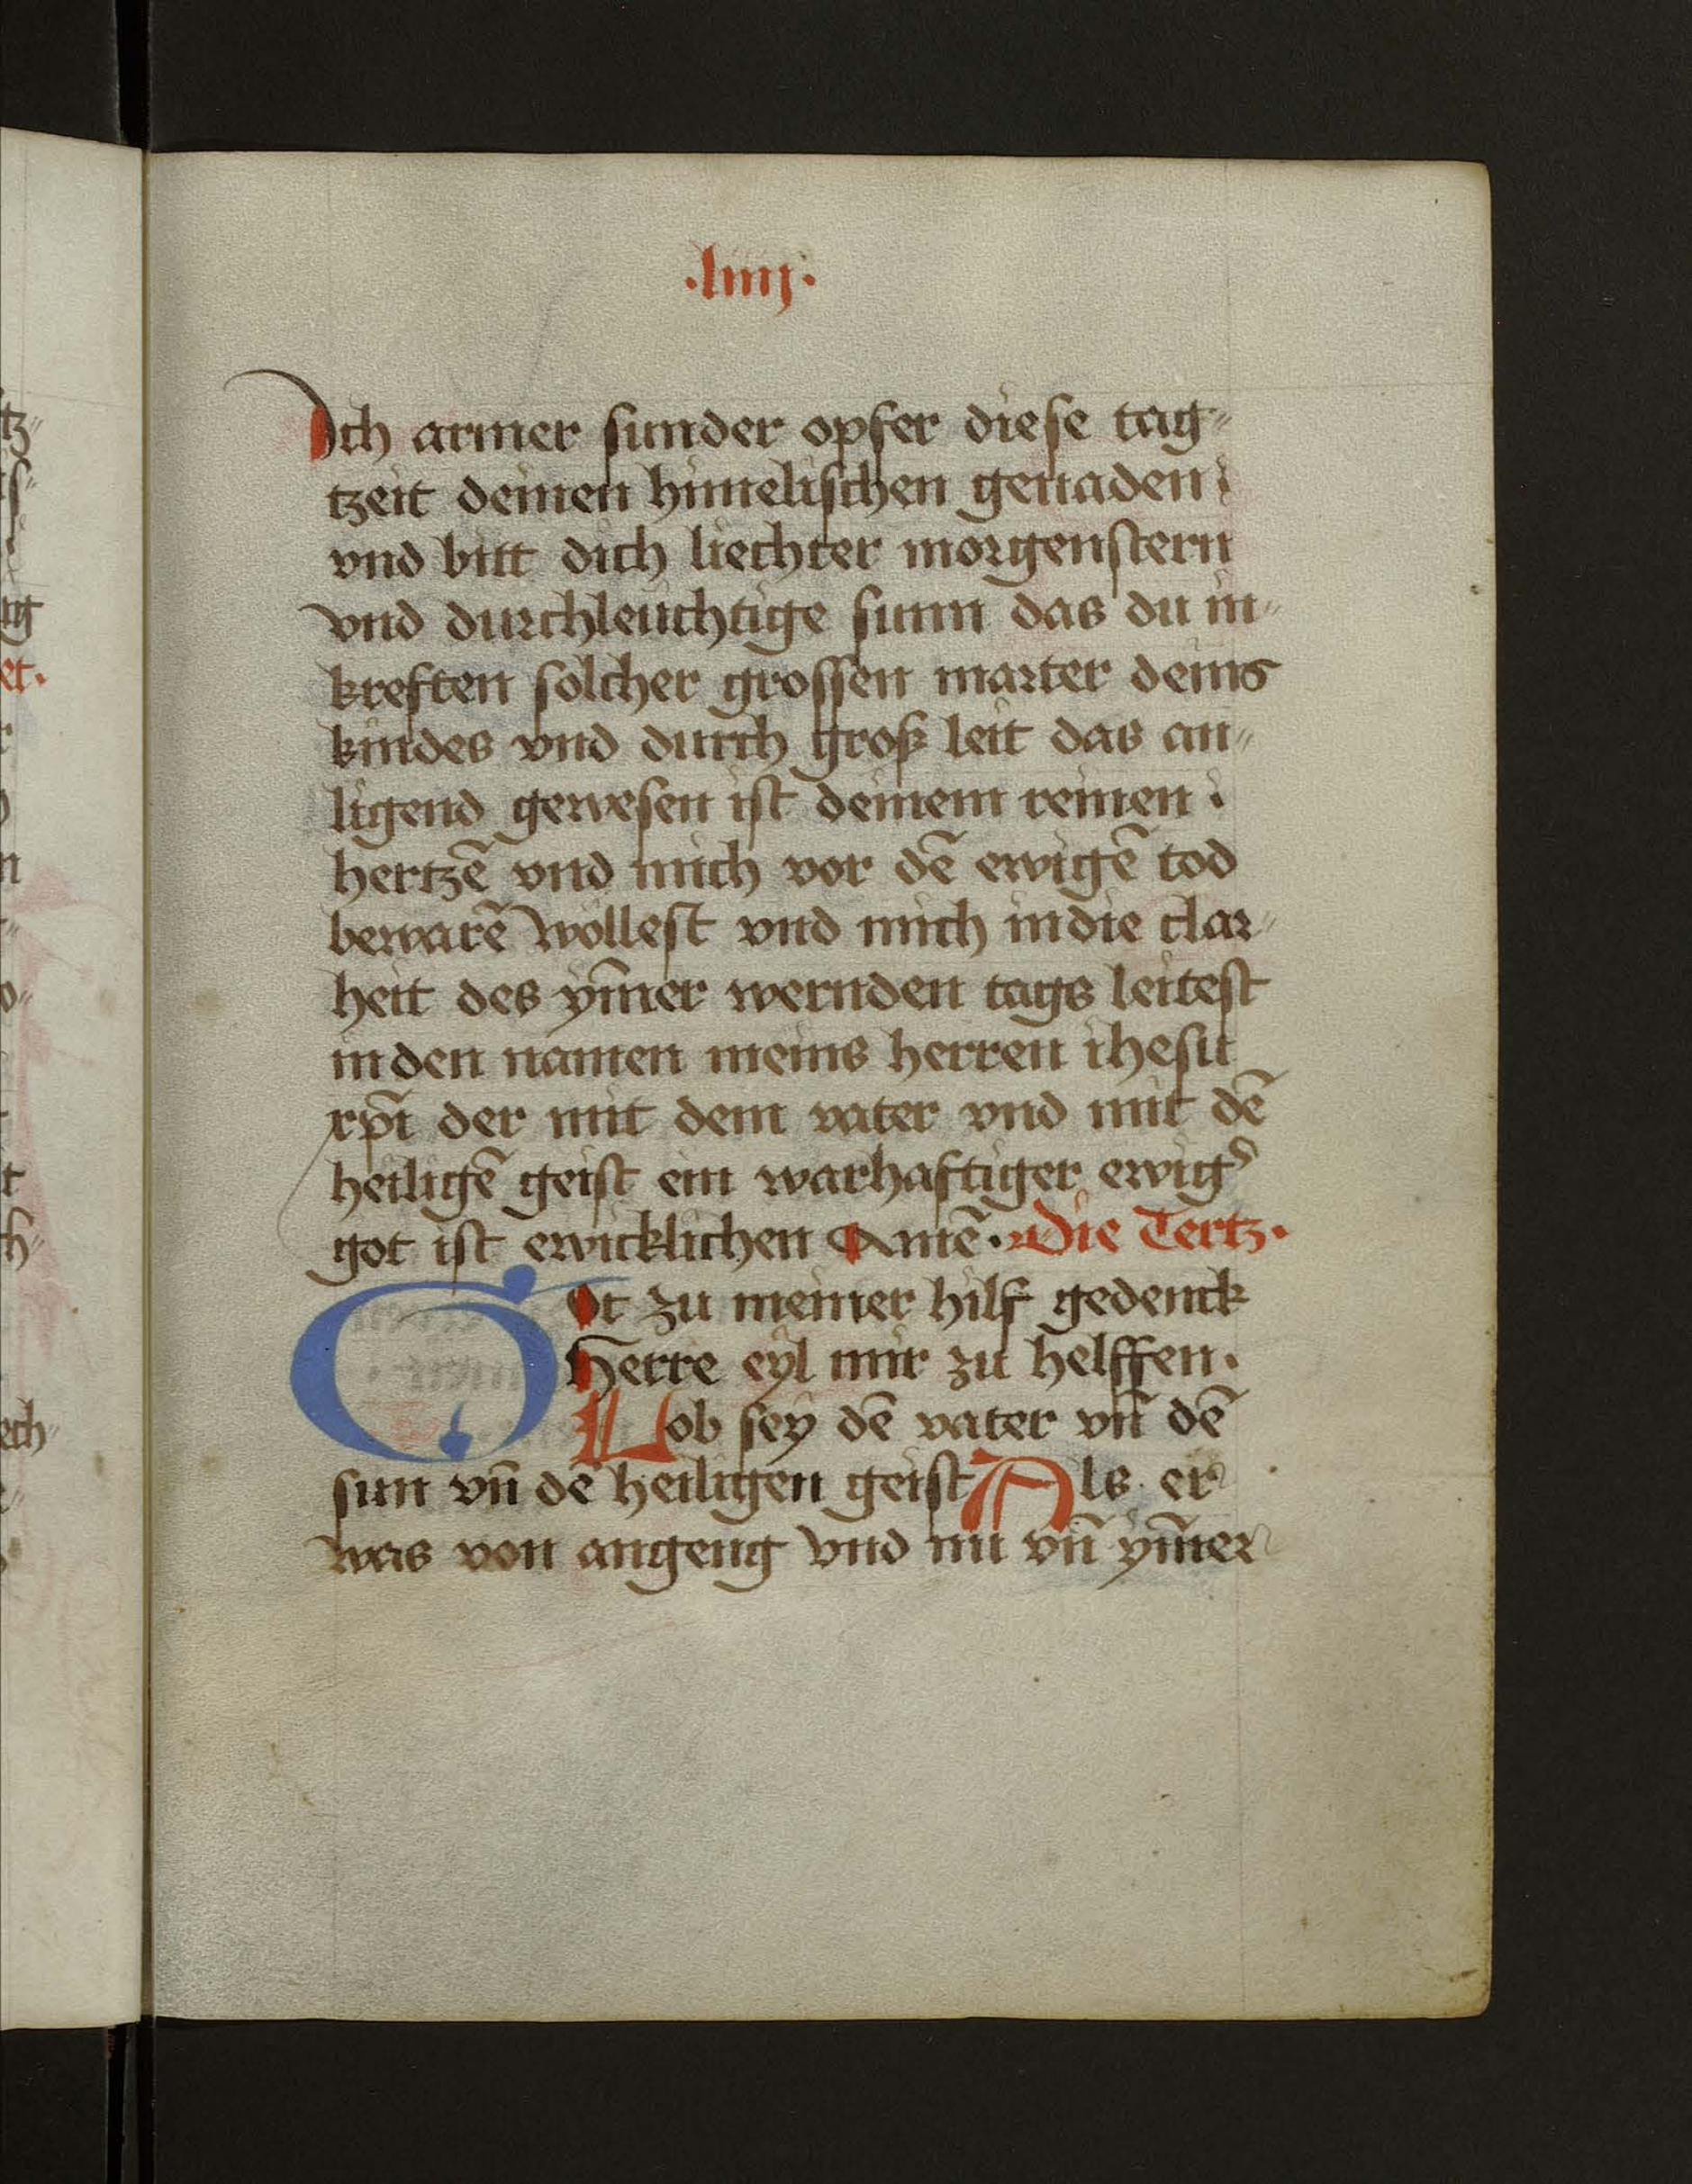 ·liiij·
Ich armer sunder opfer diese tag״
tzeit deinen himelischen genaden
vnd bitt dich liechter morgenstern
vnd durchleuchtige sunn das du in״
kreften solcher grossen marter deins
kindes vnd durch groß leit das an״
ligend gewesen ist deinem reinen
hertzē vnd mich vor dē ewigē tod
bewarē wöllest vnd mich in die clar״
heit des ym̄er wernden tags leitest
in den namen meins herren ihesu
xp̄i der mit dem vater vnd mit dē
heiligē geist ein warhaftiger ewig᾽
got ist ewicklichen Amē· Die Tertz·
Got zu meiner hilf gedenck
Herre eyl mir zu helffen·
Lob sey dē vater vn̄ dē
sun vn̄ dē heiligen geist Als er
was von angeng vnd nu vn̄ ym̄er